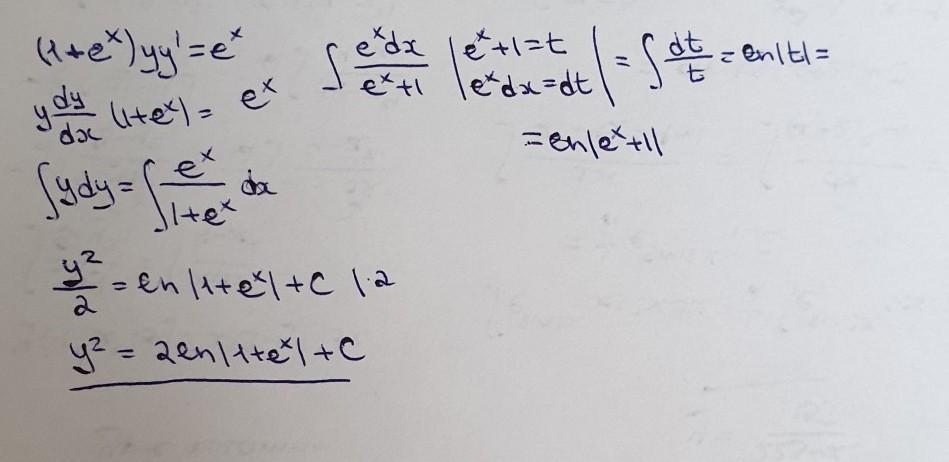 (1+eˣ)yy' = eˣ
y dy/dx (1+eˣ) = eˣ
∫ydy = ∫ eˣ/(1+eˣ) dx
y²/2 = ln|1+eˣ| + C |·2
y² = 2ln|1+eˣ| + C
∫ eˣdx/(eˣ+1) | eˣ+1=t
eˣdx=dt | = ∫ dt/t = ln|t| =
= ln|eˣ+1|